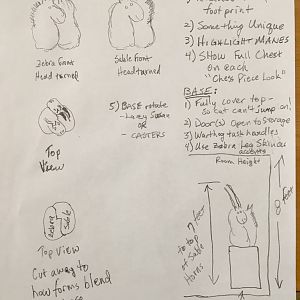 footprint
2) Something Unique
3) HIGHLIGHT MANES
4) Show Full Chest
on each
"Chess Piece Look"
Zebra Front
Head turned
Sable Front
Head turned
BASE:
1) Fully cover top -
so cat can't jump on!
2) Door(s) Open to Storage
3) Warthog tusk handles
4) Use Zebra Leg Skin(s)
accents
5) BASE rotate
- Lazy Susan
OR
- CASTERS
Top
View
Room Height
8 feet
to 7 feet
to top
of Sable
horns
Zebra
Sable
Top View
Cut away to
how forms blend